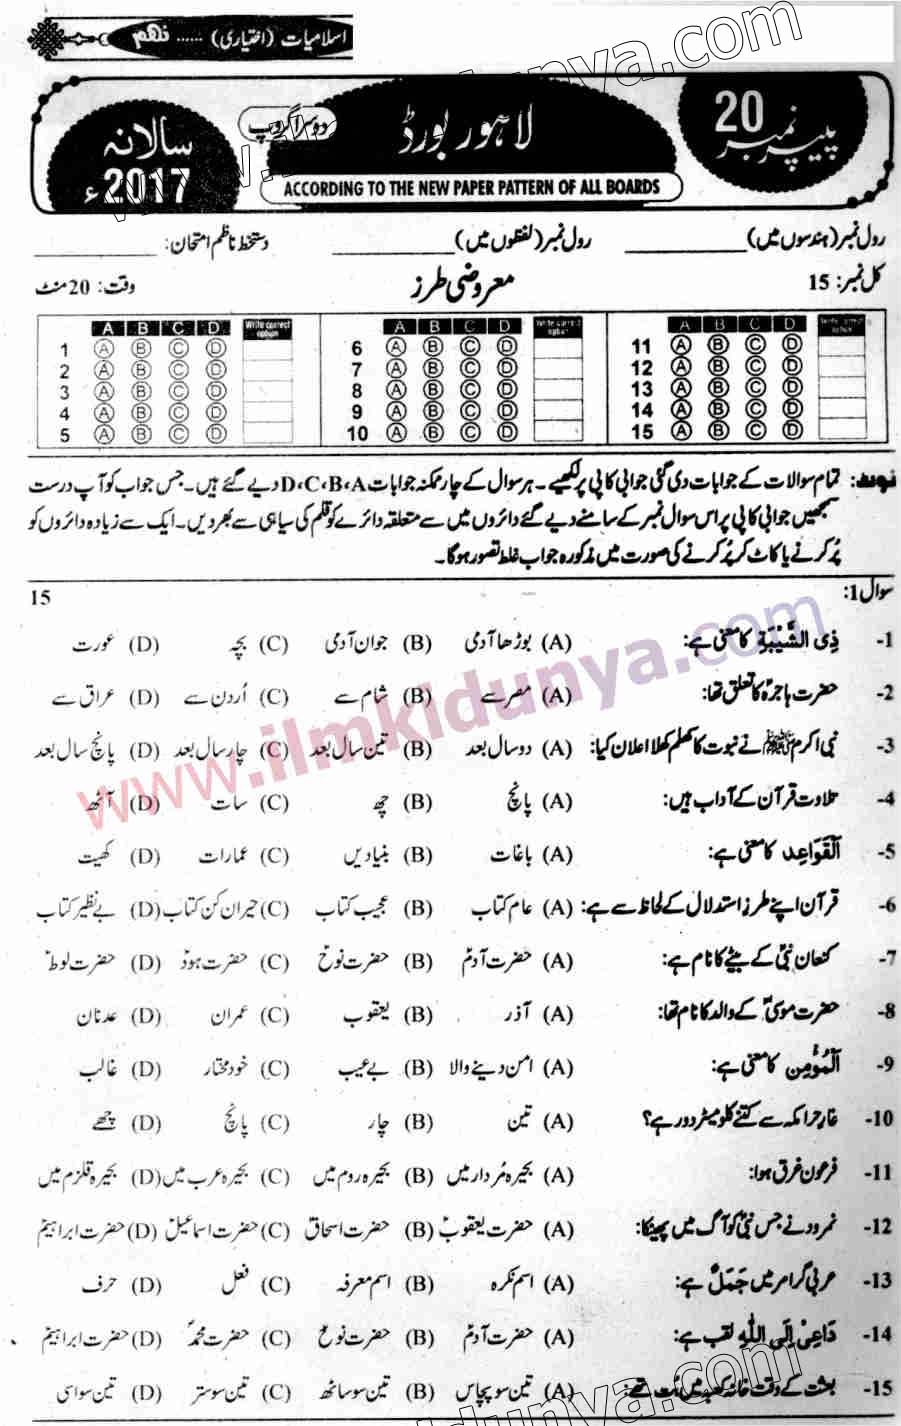 اسلامیات (اختیاری) ...... نہم
پیپر نمبر 20
لاہور بورڈ
دوسرا گروپ
سالانہ 2017ء
ACCORDING TO THE NEW PAPER PATTERN OF ALL BOARDS
رول نمبر (ہندسوں میں) ____________ رول نمبر (لفظوں میں) ____________ دستخط ناظم امتحان: ____________
کل نمبر: 15 معروضی طرز وقت: 20 منٹ
A B C D Write correct option A B C D Write correct option A B C D Write correct option
1 A B C D 6 A B C D 11 A B C D
2 A B C D 7 A B C D 12 A B C D
3 A B C D 8 A B C D 13 A B C D
4 A B C D 9 A B C D 14 A B C D
5 A B C D 10 A B C D 15 A B C D
نوٹ: تمام سوالات کے جوابات دی گئی جوابی کاپی پر لکھیے۔ ہر سوال کے چار ممکنہ جوابات D،C،B،A دیے گئے ہیں۔ جس جواب کو آپ درست
سمجھیں جوابی کاپی پر اس سوال نمبر کے سامنے دیے گئے دائروں میں سے متعلقہ دائرے کو قلم کی سیاہی سے بھر دیں۔ ایک سے زیادہ دائروں کو
پُر کرنے یا کاٹ کر پُر کرنے کی صورت میں مذکورہ جواب غلط تصور ہوگا۔
سوال 1: 15
1- ذِی الشَّیْبَۃِ کا معنی ہے: (A) بوڑھا آدمی (B) جوان آدمی (C) بچہ (D) عورت
2- حضرت ہاجرہؑ کا تعلق تھا: (A) مصر سے (B) شام سے (C) اُردن سے (D) عراق سے
3- نبی اکرم ﷺ نے نبوت کا کھلم کھلا اعلان کیا: (A) دو سال بعد (B) تین سال بعد (C) چار سال بعد (D) پانچ سال بعد
4- تلاوت قرآن کے آداب ہیں: (A) پانچ (B) چھ (C) سات (D) آٹھ
5- اَلْقَوَاعِد کا معنی ہے: (A) باغات (B) بنیادیں (C) عمارات (D) کھیت
6- قرآن اپنے طرز استدلال کے لحاظ سے ہے: (A) عام کتاب (B) عجیب کتاب (C) حیران کن کتاب (D) بے نظیر کتاب
7- کنعان نبیؑ کے بیٹے کا نام ہے: (A) حضرت آدمؑ (B) حضرت نوحؑ (C) حضرت ہودؑ (D) حضرت لوطؑ
8- حضرت موسیٰؑ کے والد کا نام تھا: (A) آذر (B) یعقوب (C) عمران (D) عدنان
9- اَلْمُؤْمِن کا معنی ہے: (A) امن دینے والا (B) بے عیب (C) خود مختار (D) غالب
10- غارِ حرا مکہ سے کتنے کلومیٹر دور ہے؟ (A) تین (B) چار (C) پانچ (D) چھے
11- فرعون غرق ہوا: (A) بحیرہ مُردار میں (B) بحیرہ روم میں (C) بحیرہ عرب میں (D) بحیرہ قلزم میں
12- نمرود نے جس نبیؑ کو آگ میں پھینکا: (A) حضرت یعقوبؑ (B) حضرت اسحاقؑ (C) حضرت اسماعیلؑ (D) حضرت ابراہیمؑ
13- عربی گرامر میں جَمَلٌ ہے: (A) اسم نکرہ (B) اسم معرفہ (C) فعل (D) حرف
14- دَاعِیْ اِلَی اللّٰہِ لقب ہے: (A) حضرت آدمؑ (B) حضرت نوحؑ (C) حضرت محمدؐ (D) حضرت ابراہیمؑ
15- بعثت کے وقت خانہ کعبہ میں بُت تھے: (A) تین سو پچاس (B) تین سو ساٹھ (C) تین سو ستر (D) تین سو اسی
www.ilmkidunya.com